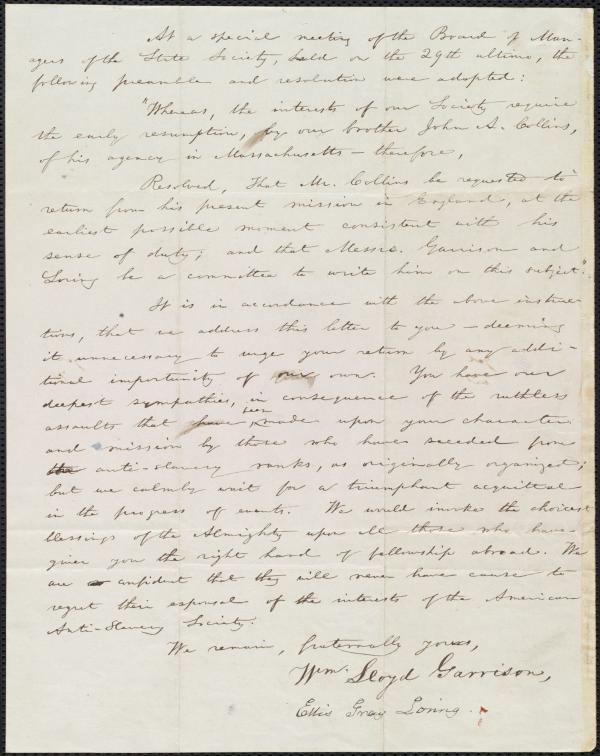 At a special meeting of the Board of Man-
agers of the State Society, held on the 29th ultimo, the
following preamble and resolution were adopted:
"Whereas, the interests of our Society require
the early resumption, by our brother John A. Collins,
of his agency in Massachusetts — therefore,
Resolved, That Mr. Collins be requested to
return from his present mission in England, at the
earliest possible moment consistent with his
sense of duty; and that Messrs. Garrison and
Loring be a committee to write him on this subject."
It is in accordance with the above instruc-
tions, that we address this letter to you — deeming
it unnecessary to urge your return by any addi-
tional importunity of our own. You have our
deepest sympathies, in consequence of the ruthless
assaults that have been made upon your character
and mission by those who have seceded from
the anti-slavery ranks, as originally organized;
but we calmly wait for a triumphant acquittal
in the progress of events. We would invoke the choicest
blessings of the Almighty upon all those who have
given you the right hand of fellowship abroad. We
are confident that they will never have cause to
regret their espousal of the interests of the American
Anti-Slavery Society.
We remain, fraternally yours,
Wm. Lloyd Garrison,
Ellis Gray Loring.